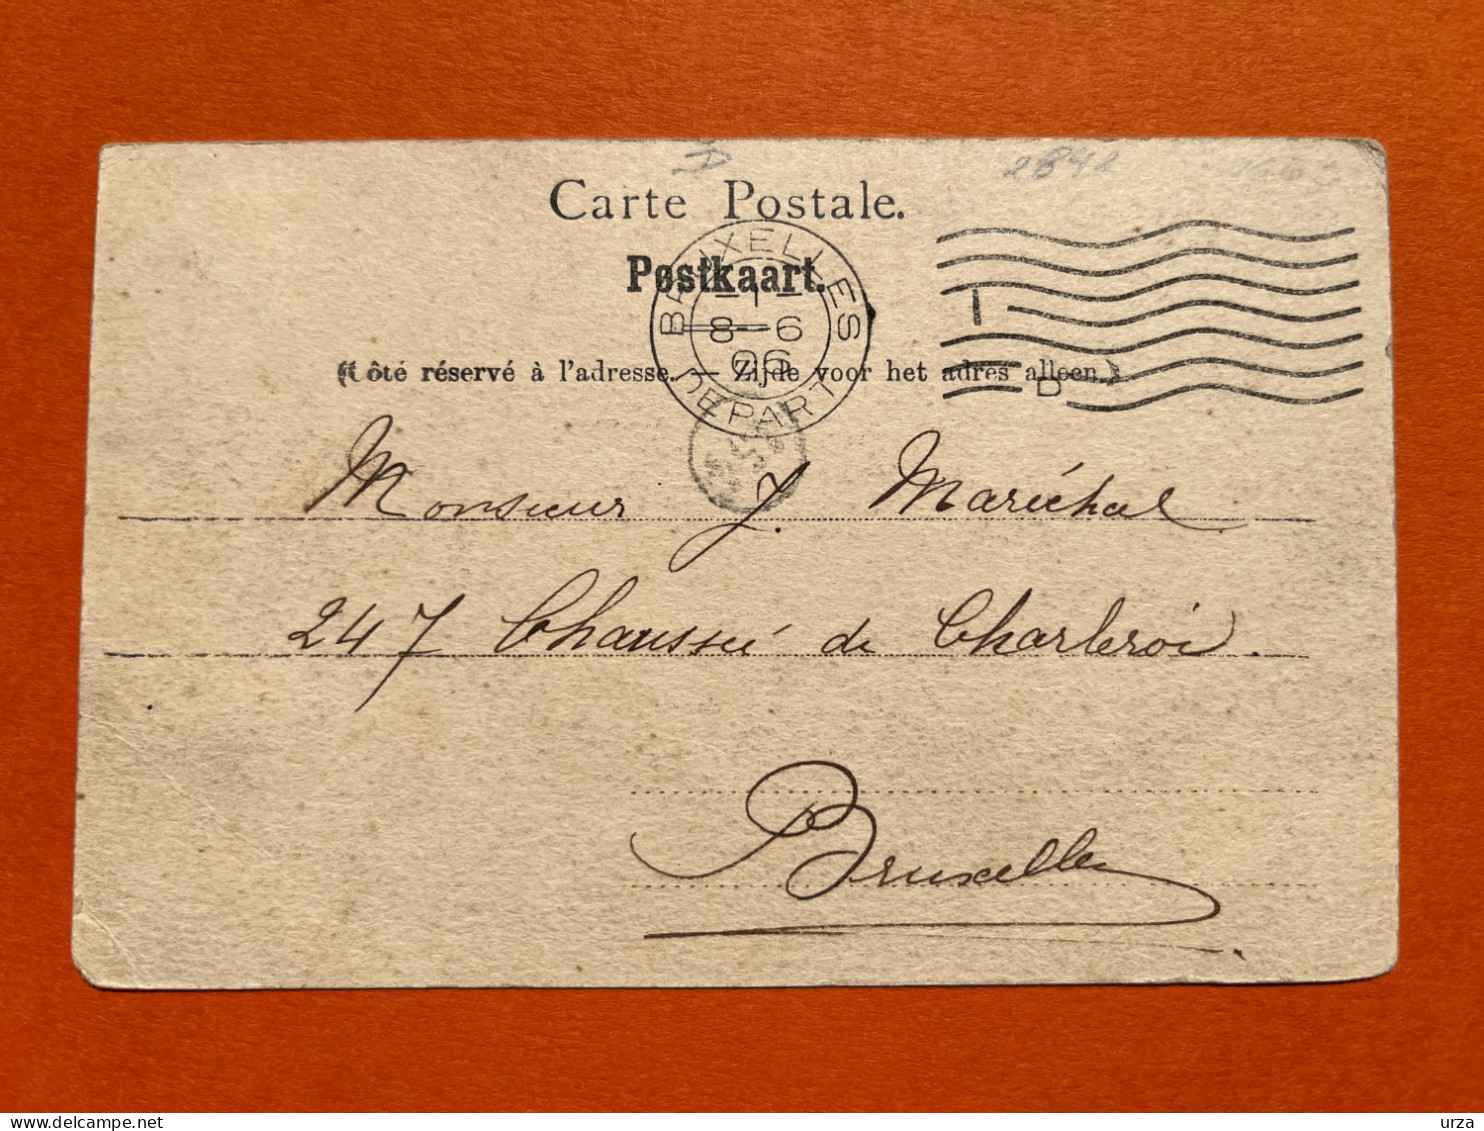 2842
Carte Postale.
Postkaart.
BRUXELLES
1
8-6
06
DEPART
(Côté réservé à l'adresse. — Zijde voor het adres alleen.)
D
Monsieur J. Maréchal
247 Chaussée de Charleroi.
Bruxelles
www.delcampe.net
urza